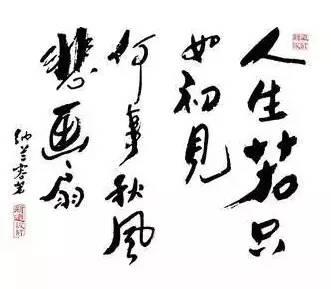 人生若只
如初見
何事秋风
悲画扇
纳兰容若